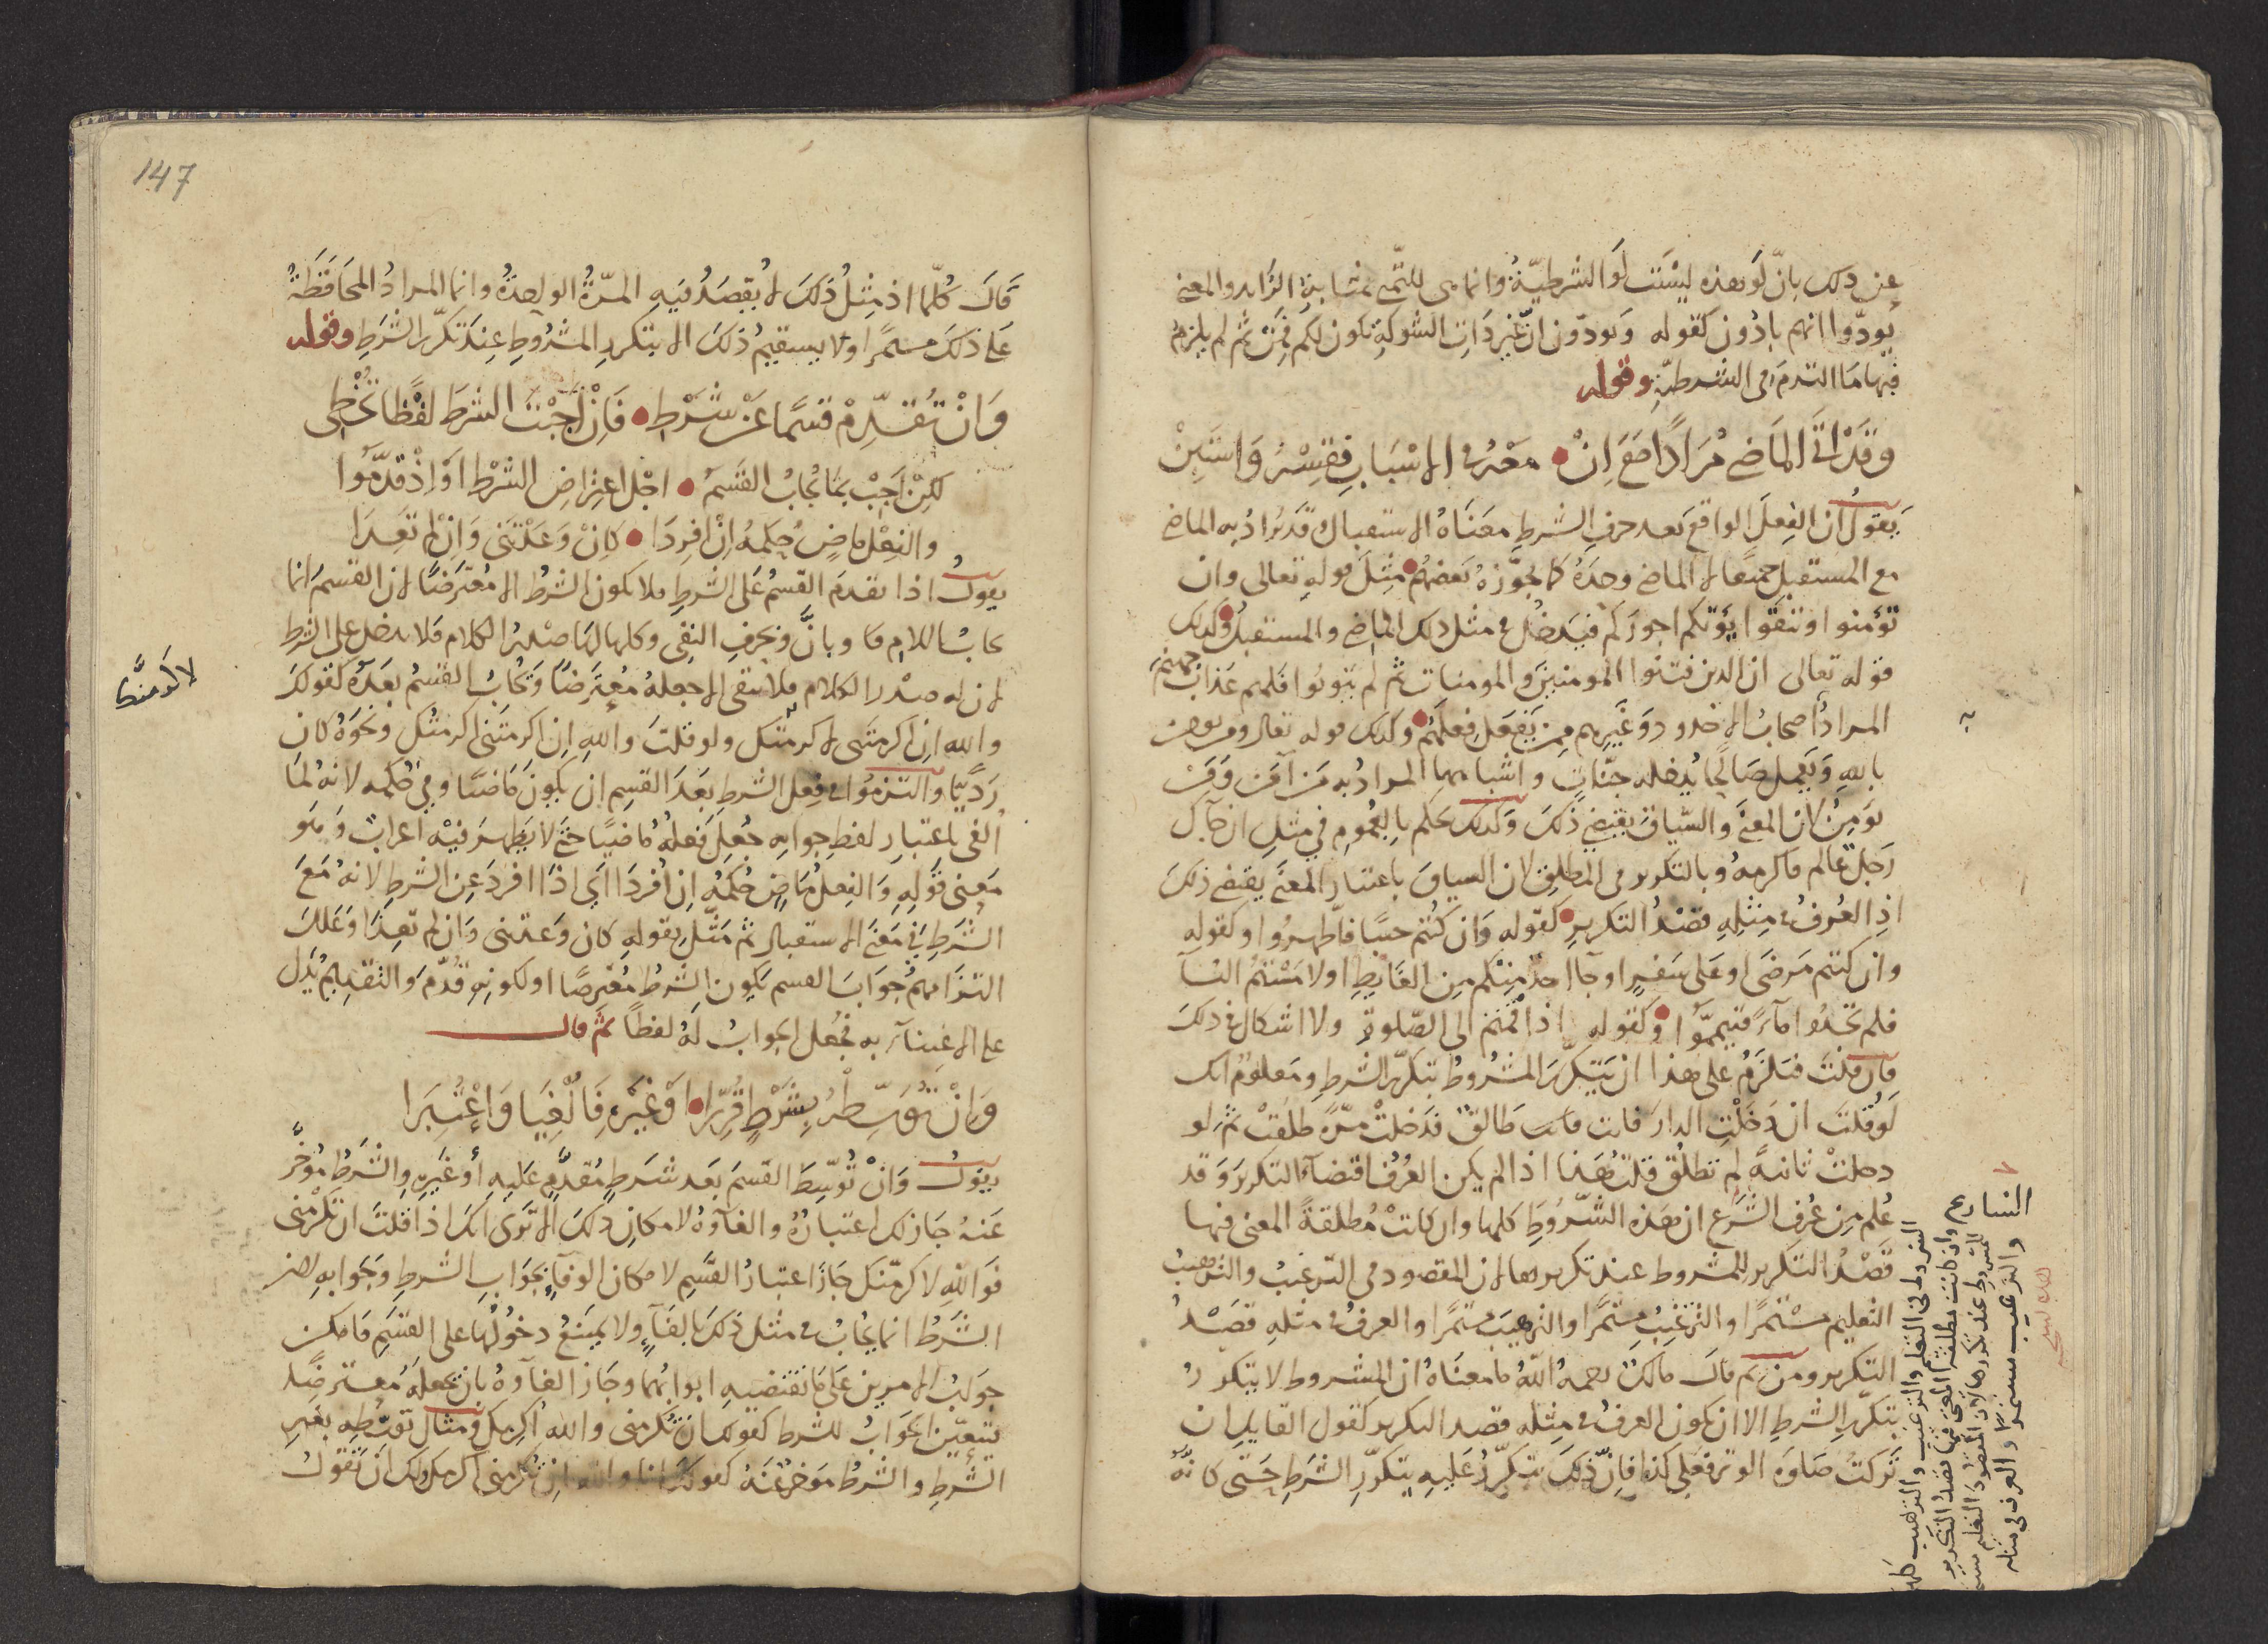 عن ذلك بانّ لو هذه ليست لو الشرطيّة وانما هي للتمني بمثابة الزايد والمعنى
يودّوا انهم بادون كقوله وتودّون انّ غير ذات الشوكة تكون لكم فمن ثم لم يلزم
فيها ما التزم في الشرطيّة وقوله
وقد اتى الماضي مرادًا مع اِنْ معْهُ في الاسْبابِ فقِسْهُ واسْتَبِنْ
يقول ان الفعل الواقع بعد حرف الشرط معناه الاستقبال قد يراد به الماضي
مع المستقبل جميعا لا الماضي وحده كما يجوّزه بعضهم مثل قوله تعالى وان
تؤمنوا وتتقوا يؤتكم اجوركم فيدخل في مثل ذلك الماضي والمستقبل وكذلك
قوله تعالى ان الذين فتنوا المومنين والمومنات ثم لم يتوبوا فلهم عذاب جهنم
المراد أصحاب الاخدود وغيرهم ممن يفعل فعلهم وكذلك قوله تعالى ومن يومن
بالله ويعمل صالحًا يدخله جنّاتٍ واشباهها المراد به من آمن ومن
يومن لان المعنى والسّياق يقتضي ذلك وكذلك حكم بالعموم في مثل ان جآك
رجل عالم فاكرمه وبالتكرير في المطلق لان السياق باعتبار المعنى يقتضي ذلك
اذ العرف في مثله قصد التكرير كقوله وان كنتم جنبًا فاطّهروا وكقوله
وان كنتم مرضى او على سفرٍ او جآ احدٌ منكم من الغايط او لامستم النسآ
فلم تجدوا مآءً فتيمموا وكقوله اذا قمتم الى الصّلوة ولا اشكال في ذلك
فان قلت فيلزم على هذا ان يتكرّر المشروط بتكرّر الشرط ومعلوم انك
لو قلت ان دخلتِ الدار فانت طالق فدخلتْ مرّة طلقتْ ثم لو
دخلتْ ثانيةً لم تطلُق قلت هذا اذا لم يكن العُرف اقتضآء التكرير وقد
عُلم من عُرف الشرع ان هذه الشّروط كلها وان كانتْ مُطلقةً المعنى فيها
قصْدُ التكرير للمشروط عند تكريرها لان المقصود في الترغيب والترهيب
التعليم مستمرًا والترغيب مستمرًا والترهيب مستمرًا والعرف في مثله قصد
التكرير ومن ثم قال مالك رحمه الله ما معناه ان المشروط لا يتكرر
بتكرّر الشرط الا ان يكون العرف في مثله قصد التكرير كقول القايل ان
تركتُ صلوة الوتر فعلي كذا فانّ ذلك يتكرّر عليه بتكرّر الشرط حتى كانّه
الشارع
الشروط في التعليم والترغيب والترهيب كلها
وان كانت مطلقة المعنى فيها قصد التكرير
للمشروط عند تكررها لان المقصود التعليم
والترغيب مستمرًا والعرف في مثله
147
قال كُلّما اذ مثلُ ذلك لا يُقصدُ فيه المرّةُ الواحدةُ وانما المرادُ المحافظةُ
على ذلك مستمرًا ولا يستقيمُ ذلك الا بتكرر المشروط عند تكرّر الشرط وقوله
وانْ تُقدّمْ قسمًا عن شرْطِ فاِنْ أجبْتَ الشرط لفظًا تُخْطِي
لكنْ أجِبْ بما يُجابُ القسَمُ اجْل اعتراضِ الشرْطِ اَوْ اذْ قدّموا
والفِعْل ماضٍ حكمُهُ انْ افرِدَا كانْ وعَدْتَني وانْ لم تعِدَا
يقول اذا تقدم القسمُ على الشرط فلا يكون الشرط الا مُعترضًا لان القسم انما
يجابُ باللام وما وبانّ وبحرف النفي وكلها لها صدْرُ الكلام فلا تدخل على الشرط
لان له صدر الكلام فلا يبقى الا جعلهُ معترضًا ويُجابُ القسمُ بعده كقولك
والله ان اكرمتني لاكرمنّك ولو قلت والله ان اكرمتني اكرمتُك ونحوه كان
رَديًّا والتزموا في فعل الشرط بعد القسم ان يكون ماضيًا وفي حُكمه لانه لما
أُلغي باعتبار لفظ جوابه جُعل فعلهُ ماضيًا حتى لا يظهر فيه اعرابٌ وهو
معنى قوله والفعل ماضٍ حُكمُه ان أُفردا اي اذا افرد عن الشرط لانه مع
الشرط في معنى الاستقبال ثم مثّل بقوله كان وعدتني وان لم تعِدا وعلّل
التزامهم جواب القسم بكون الشرط معترضًا او لكونه قُدّم والتقديم يدل
على الاعتناء به فجُعل الجوابُ له لفظًا ثم قال
وانْ تُوَسّطْهُ بِشَرْطٍ قُرّرا اوْ غيْرِهِ فَألْغِيَا واعْتُبِرا
يقول وانْ تُوسّط القسم بعد شرطٍ مُقدّمٍ عليه أو غيره والشرط مُوخّرٌ
عنه جاز لك اعتبارُهُ والغآؤه لامكان ذلك الا ترى انك اذا قلت ان تكرمني
فوالله لاكرمنّك جاز اعتبارُ القسم لامكان الوفآء بجواب الشرط وبجوابه لان
الشرط انما يُجابُ في مثل ذلك بالفآء ولا يمتنعُ دخولُها على القسم فامكن
جوابُ الامرين على ما تقتضيه ابوابُهما وجاز الغآؤه بان تجعله معترضًا
فيتعيّن الجوابُ للشرط كقولك ان تُكرمني والله أُكرمك ومثال توسّطه بغير
الشرط والشرط مؤخرٌ عنه كقولك انا والله ان تُكرمني اكرمك ولك ان تقول
لاكرمنّك